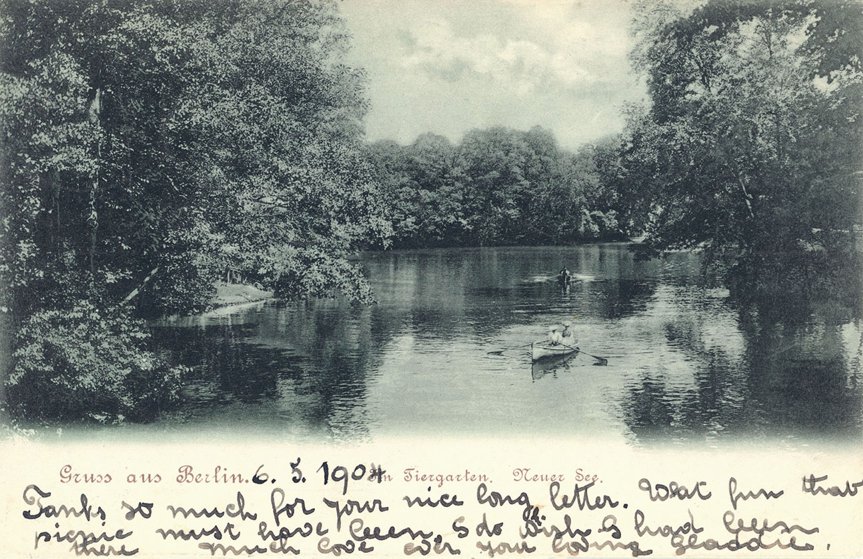 Gruss aus Berlin. 6. 5. 1904 Im Tiergarten. Neuer See.
Tanks so much for your nice long letter. What fun that
picnic must have been, I do wish I had been
there much love ever your loving Gladdie.